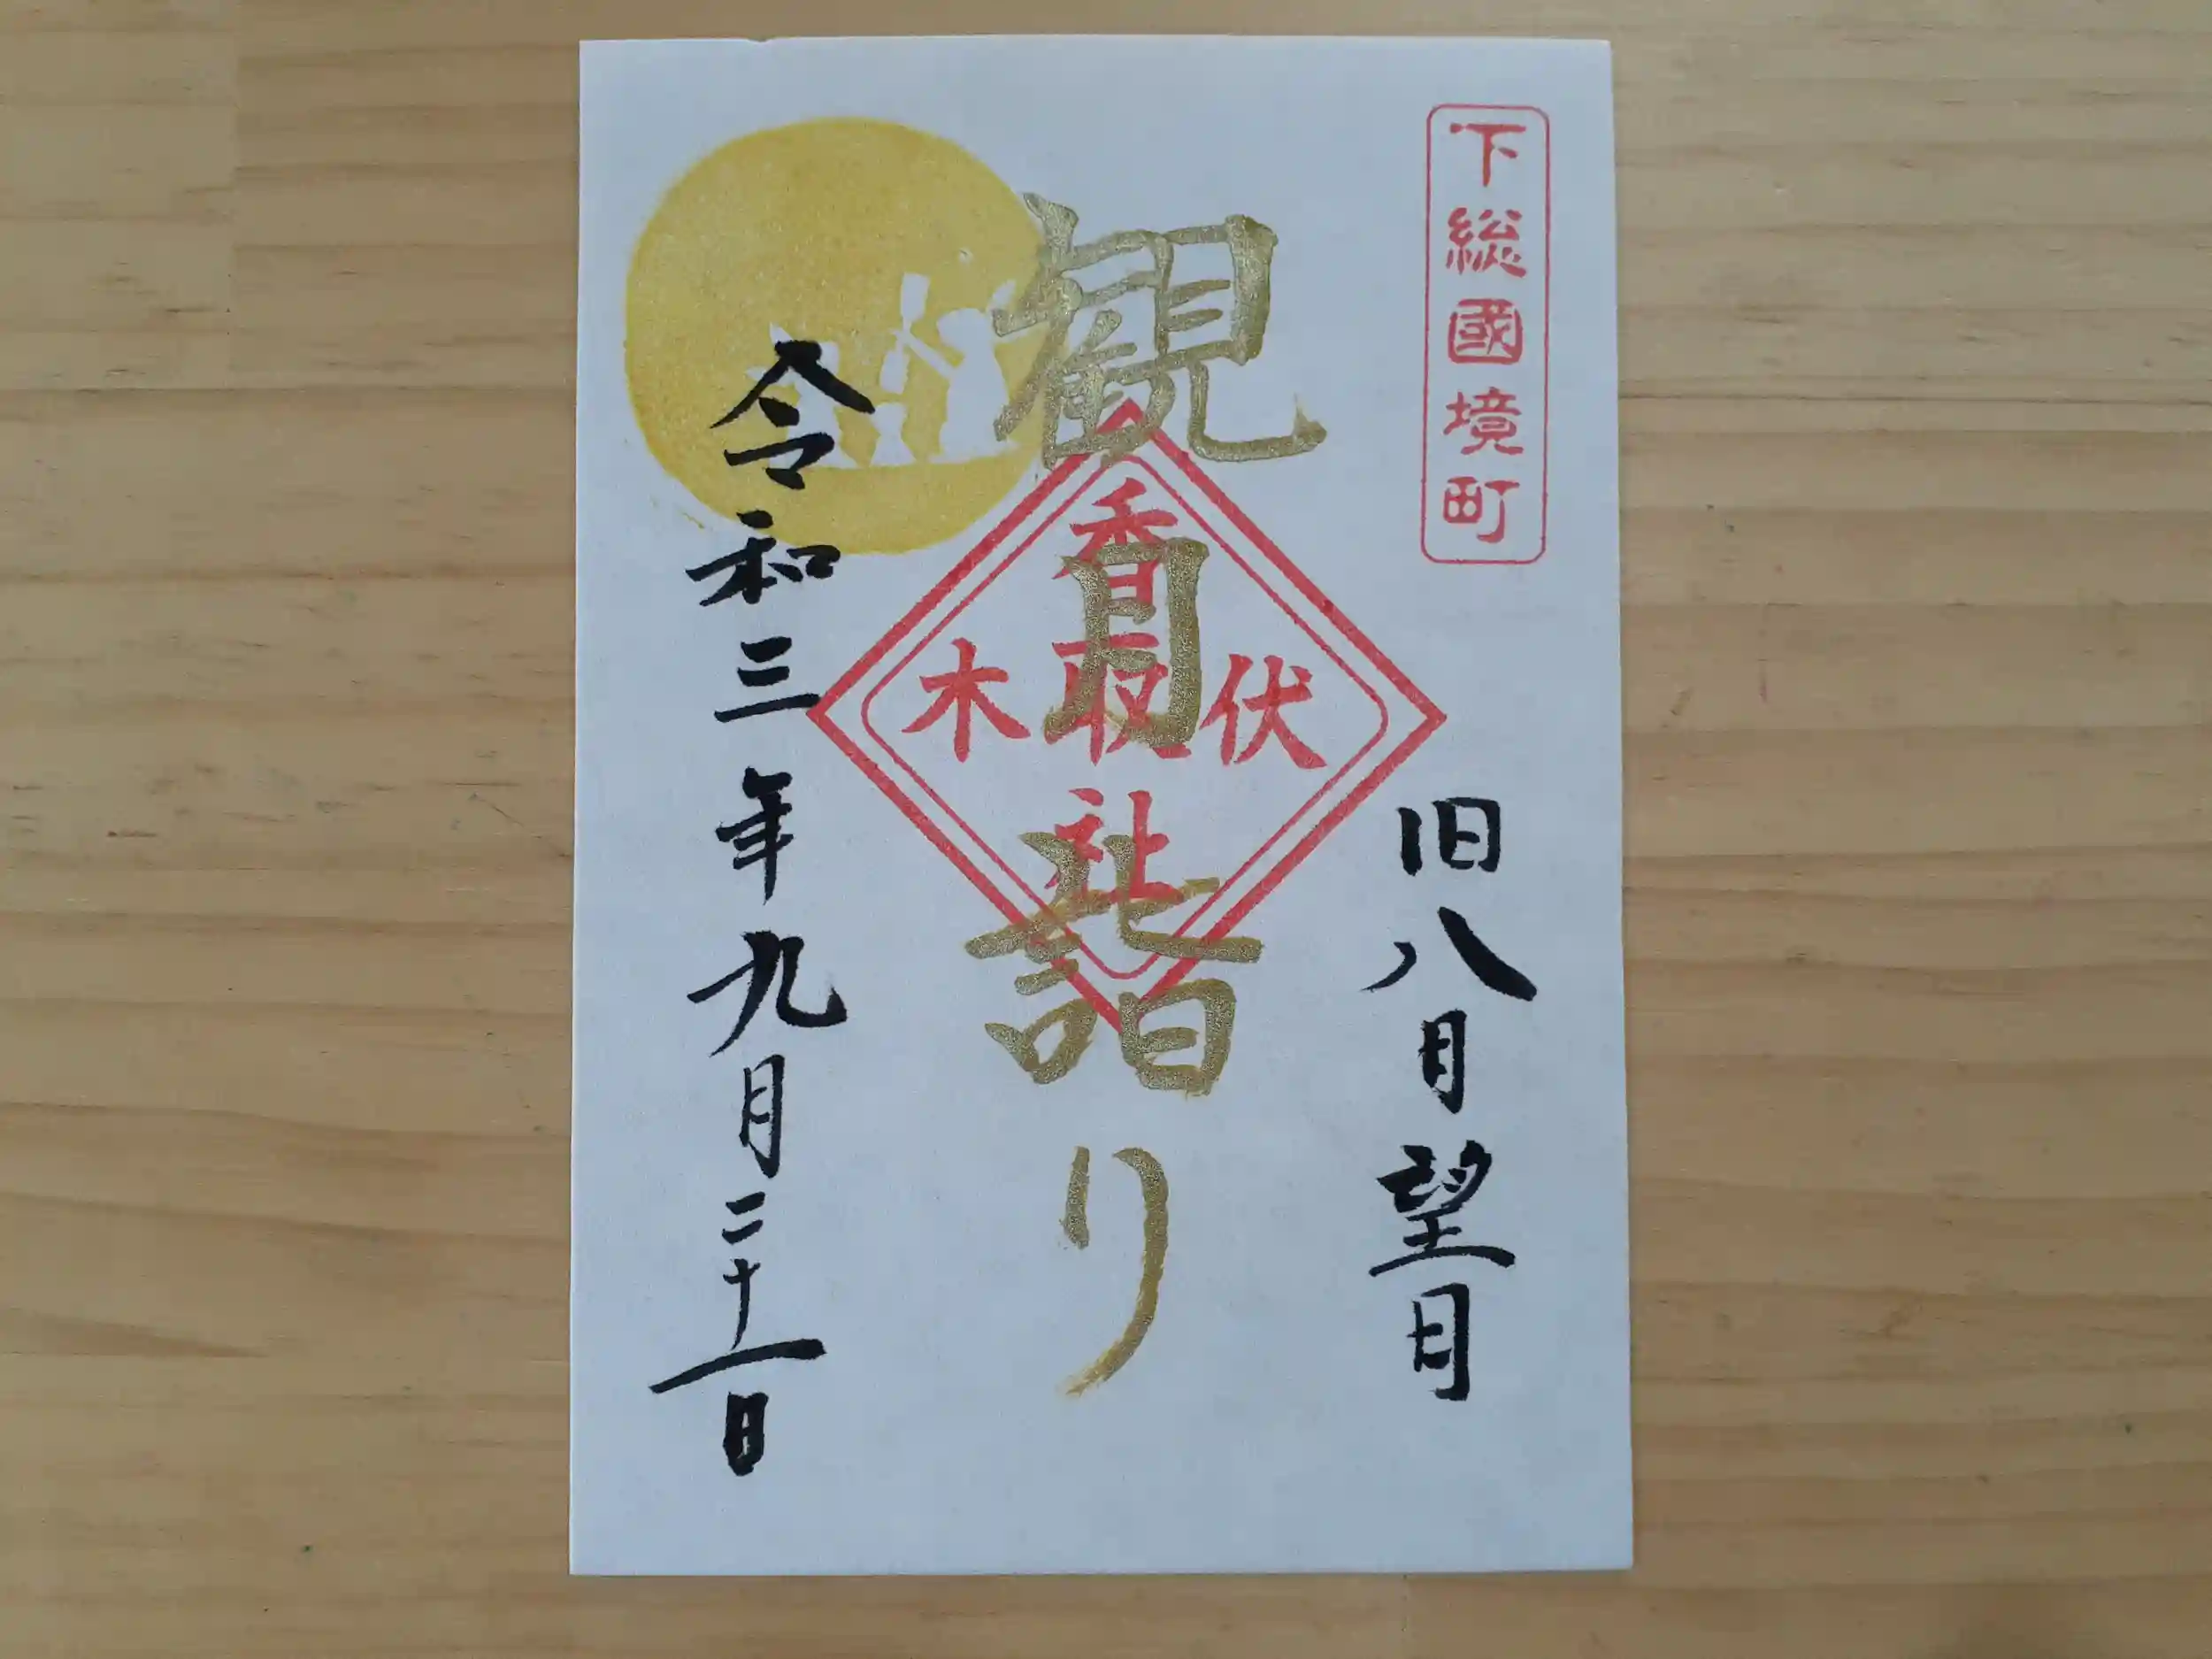 下総國境町
旧八月望月
観月詣り
香取社
伏木
令和三年九月二十一日